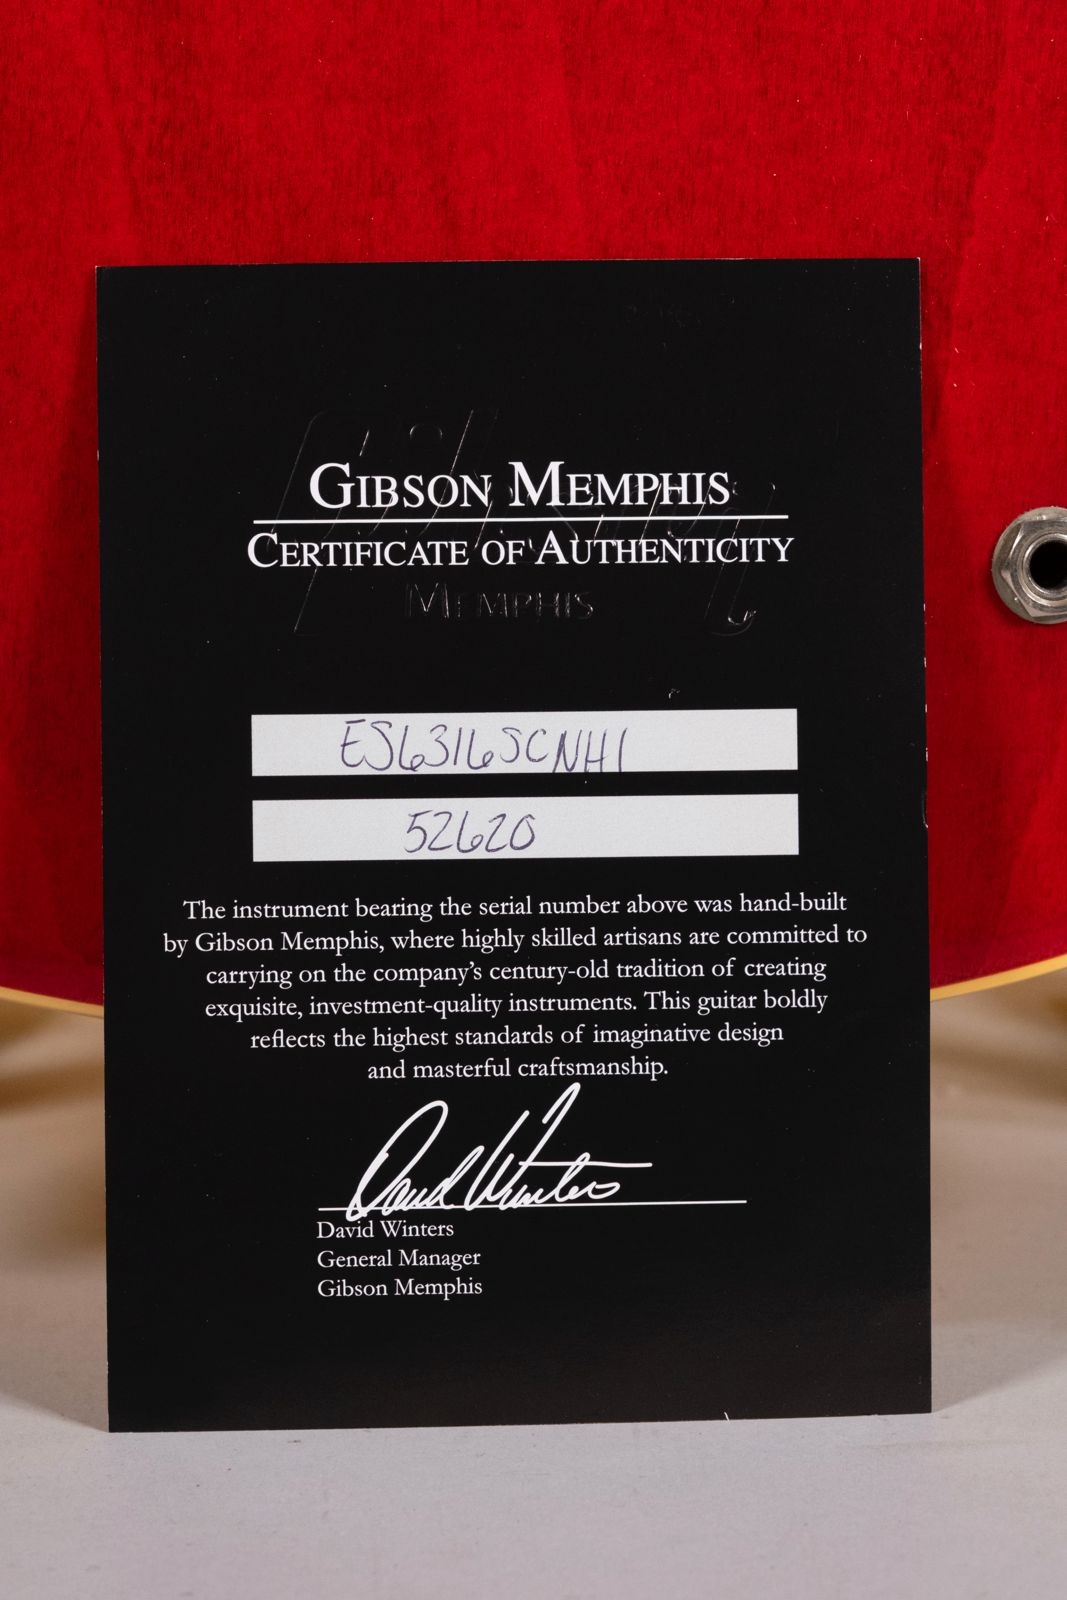 GIBSON MEMPHIS
CERTIFICATE OF AUTHENTICITY
MEMPHIS
ES6316SCNH1
52620
The instrument bearing the serial number above was hand-built
by Gibson Memphis, where highly skilled artisans are committed to
carrying on the company's century-old tradition of creating
exquisite, investment-quality instruments. This guitar boldly
reflects the highest standards of imaginative design
and masterful craftsmanship.
David Winters
David Winters
General Manager
Gibson Memphis